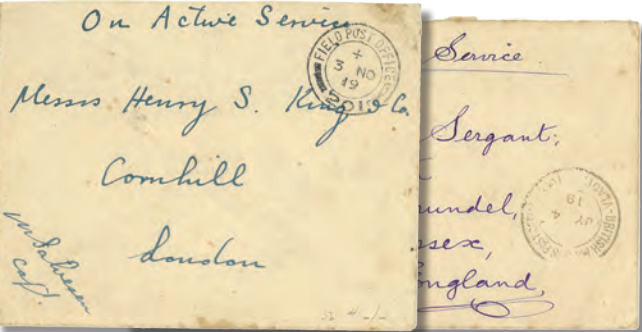 On Active Service
FIELD POST OFFICE
3 NO
19
Messrs Henry S. King & Co.
Cornhill
London
Capt.
Service
Sergant,
rundel,
ssex,
England,
BRITISH
JY 4
19
VLADI